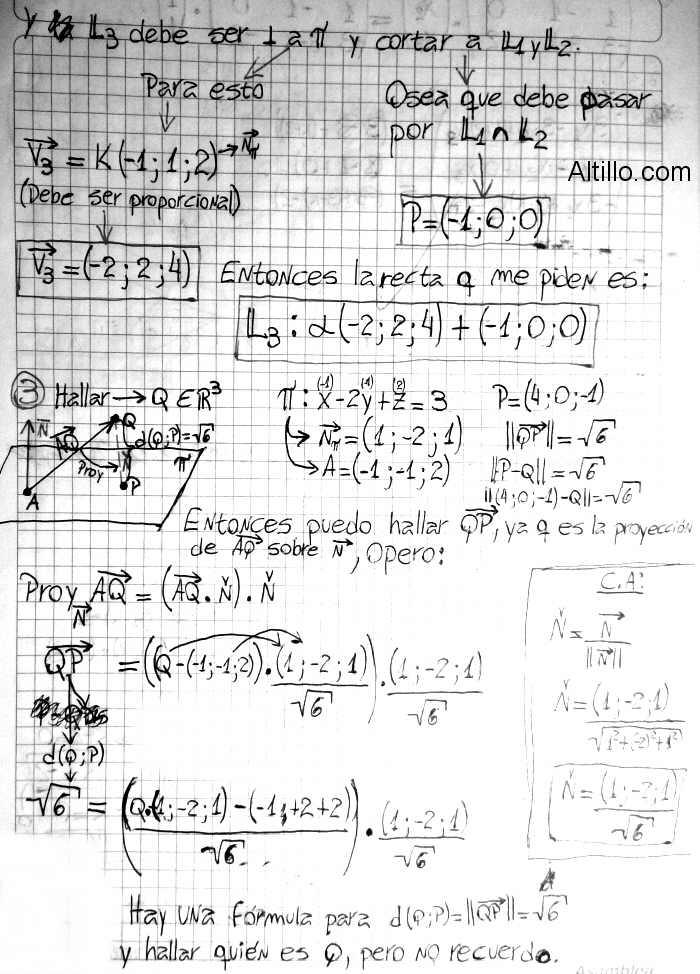 y L3 debe ser ⊥ a π y cortar a L1 y L2.
Para esto
Osea que debe pasar
por L1 ∩ L2
V3 = K(-1; 1; 2) → Nπ
(Debe ser proporcional)
Altillo.com
P = (-1; 0; 0)
V3 = (-2; 2; 4)
Entonces la recta q me piden es:
L3 : α(-2; 2; 4) + (-1; 0; 0)
③ Hallar → Q ∈ R³
π: x - 2y + z = 3
(-1) (-1) (2)
P = (4; 0; -1)
Nπ = (1; -2; 1)
||QP|| = √6
A = (-1; -1; 2)
||P - Q|| = √6
||(4; 0; -1) - Q|| = √6
N
AQ
Q
d(Q;P) = √6
Proy
N
π
P
A
Entonces puedo hallar QP, ya q es la proyección
de AQ sobre N, Opero:
Proy N AQ = (AQ . Ň) . Ň
QP = ((Q - (-1; -1; 2)) . (1; -2; 1)/√6) . (1; -2; 1)/√6
d(Q;P)
√6 = ((Q . (1; -2; 1) - (-1, +2 + 2))/√6) . (1; -2; 1)/√6
C.A:
Ň = N/||N||
Ň = (1; -2; 1)/√1²+(-2)²+1²
Ň = (1; -2; 1)/√6
Hay una fórmula para d(Q;P) = ||QP|| = √6
y hallar quién es Q, pero no recuerdo.